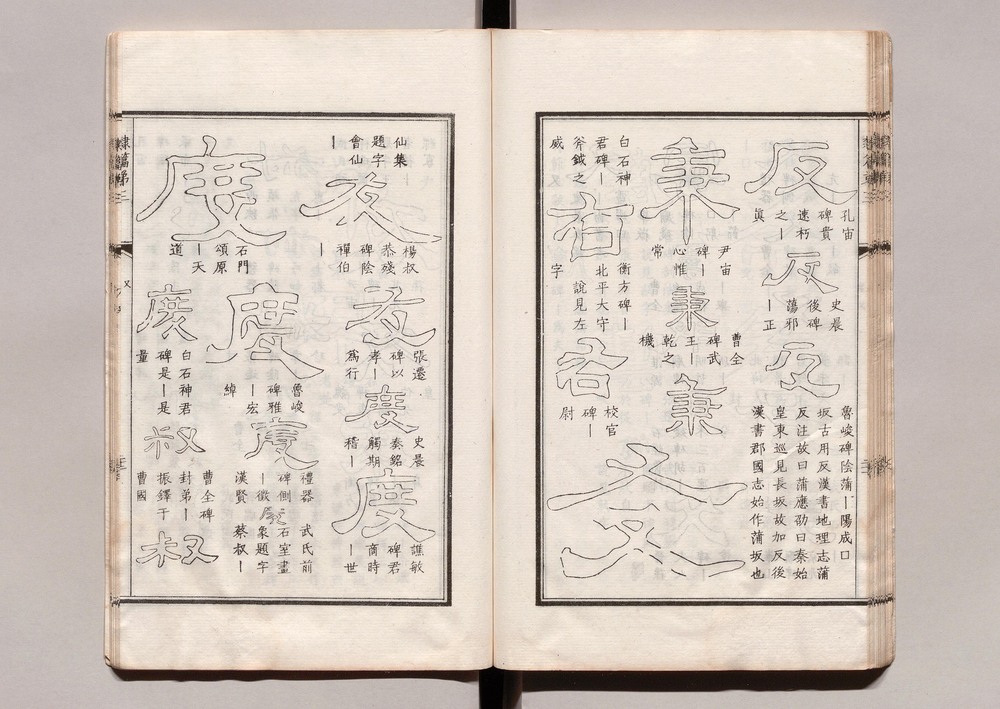 反
孔宙
碑貴
速朽
之丨
眞
反
史晨
後碑
蕩邪
丨正
反
魯峻碑陰蒲丨陽成口
坂古用反漢書地理志蒲
反注故曰蒲應劭曰秦始
皇東巡見長坂故加反後
漢書郡國志始作蒲坂也
秉
尹宙
碑丨
心惟
常
秉
曹全
碑武
王丨
乾之
機
秉
白石神
君碑丨
斧鉞之
威
右
衡方碑丨
北平大守
說見左
字
右
校官
碑丨
尉
仙集
題字
會仙
丨
友
楊叔
恭殘
碑陰
禪伯
丨
友
張遷
碑以
孝丨
爲行
度
史晨
奏銘
觸期
稽丨
度
譙敏
碑君
商時
丨世
度
石門
頌原
丨天
道
度
魯峻
碑雅
丨宏
綽
度
禮器
碑側
丨徵
漢賢
武氏前
石室畫
象題字
蔡叔丨
度
白石神君
碑是丨是
量
叔
曹全碑
封弟丨
振鐸于
曹國
叔
隷篇第三
又